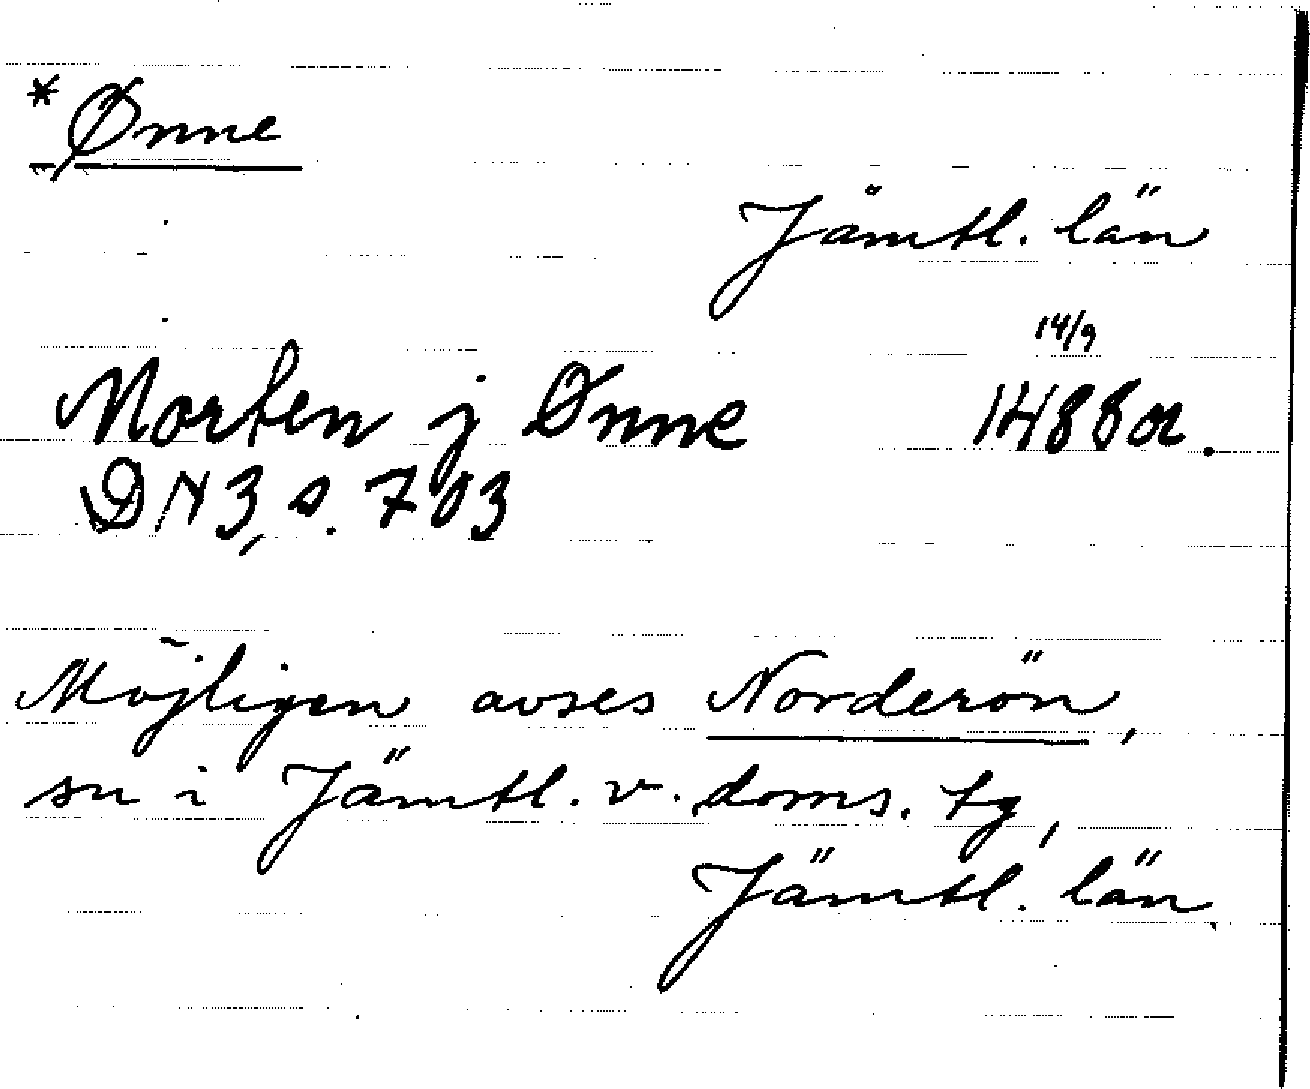 *Ønne
Jämtl. län
14/9
Morten j Ønne 1488 or.
DN 3, s. 703
Möjligen avses Norderön,
sn i Jämtl. v. doms. tg,
Jämtl. län.